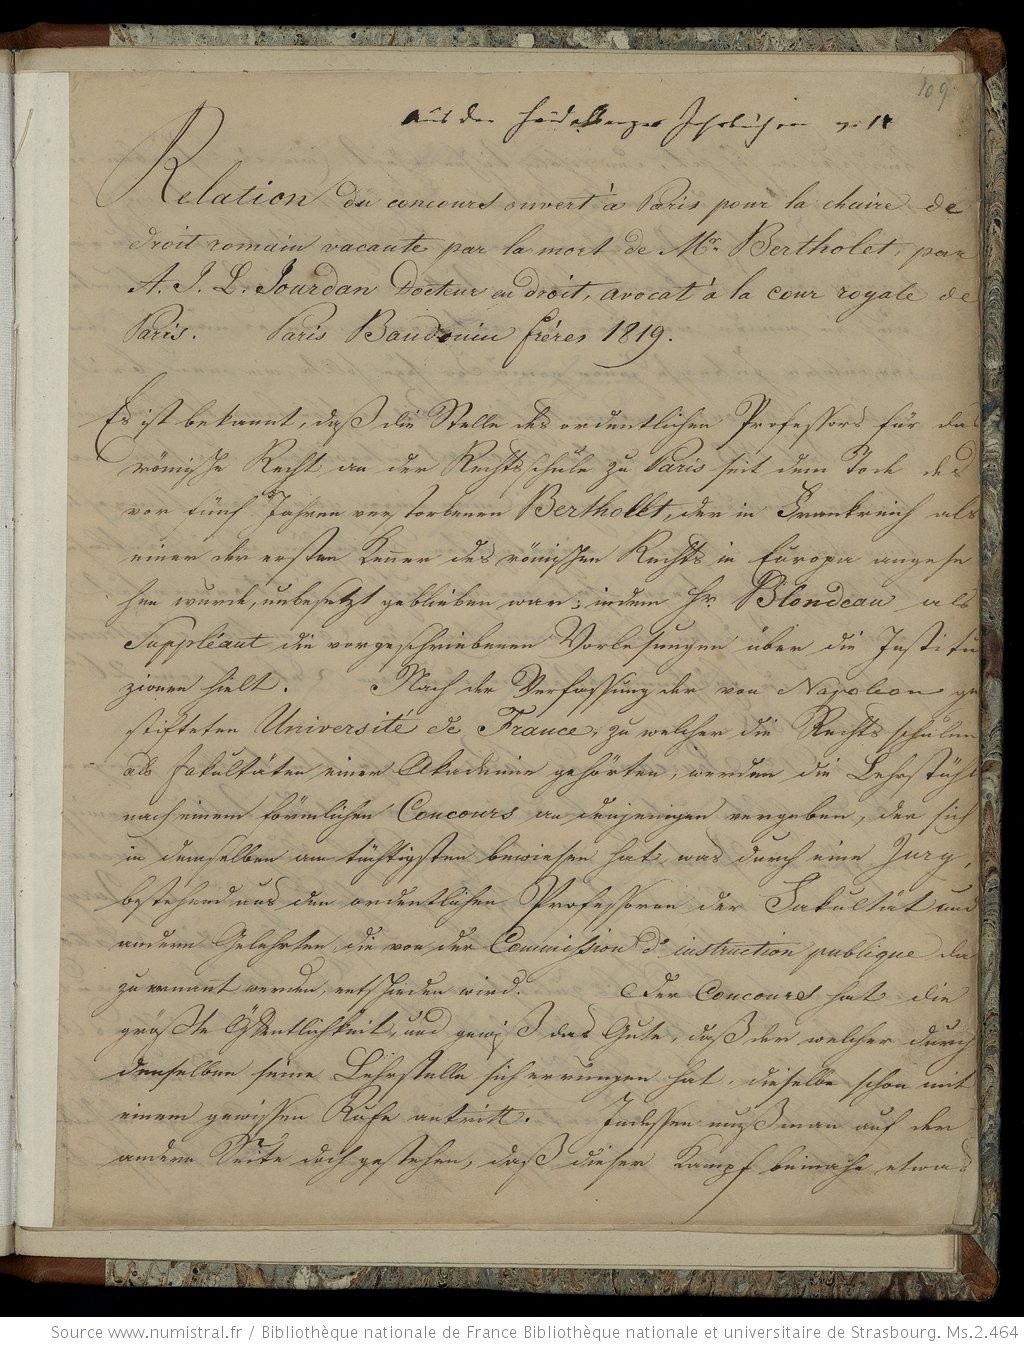 109
Aus den Heidelberger Jahrbüchern
Relation du concours ouvert à Paris pour la chaire de
droit romain vacante par la mort de Mr. Bertholet, par
A. J. L. Jourdan Docteur en droit, avocat à la cour royale de
Paris. Paris Baudouin fréres 1819.
Es ist bekannt, daß die Stelle des ordentlichen Professors für das
römische Recht an der Rechtsschule zu Paris seit dem Tode des
vor fünf Jahren verstorbenen Berthollet, der in Frankreich als
einer der ersten Kenner des römischen Rechts in Europa angese
hen wurde, unbesetzt geblieben war; indem Hr. Blondeau als
Suppléant die vorgeschriebenen Vorlesungen über die Institu
zionen hielt. Nach der Verfassung der von Napoleon ge
stifteten Université de France, zu welcher die Rechtsschulen
als Fakultäten einer Akademie gehörten, werden die Lehrstühl
nach einem förmlichen Concours an denjenigen vergeben, der sich
in demselben am tüchtigsten bewiesen hat, was durch eine Jury,
bestehend aus den ordentlichen Professoren der Fakultät und
andern Gelehrten, die von der Commission d'instruction publique da
zu ernannt werden, entschieden wird. Der Concours hat die
größte Öffentlichkeit, und gewiß das Gute, daß der welcher durch
denselben seine Lehrstelle sich errungen hat, dieselbe schon mit
einem gewissen Rufe antritt. Indessen muß man auf der
andern Seite doch gestehen, daß dieser Kampf beinahe etwas
Source www.numistral.fr / Bibliothèque nationale de France Bibliothèque nationale et universitaire de Strasbourg. Ms.2.464